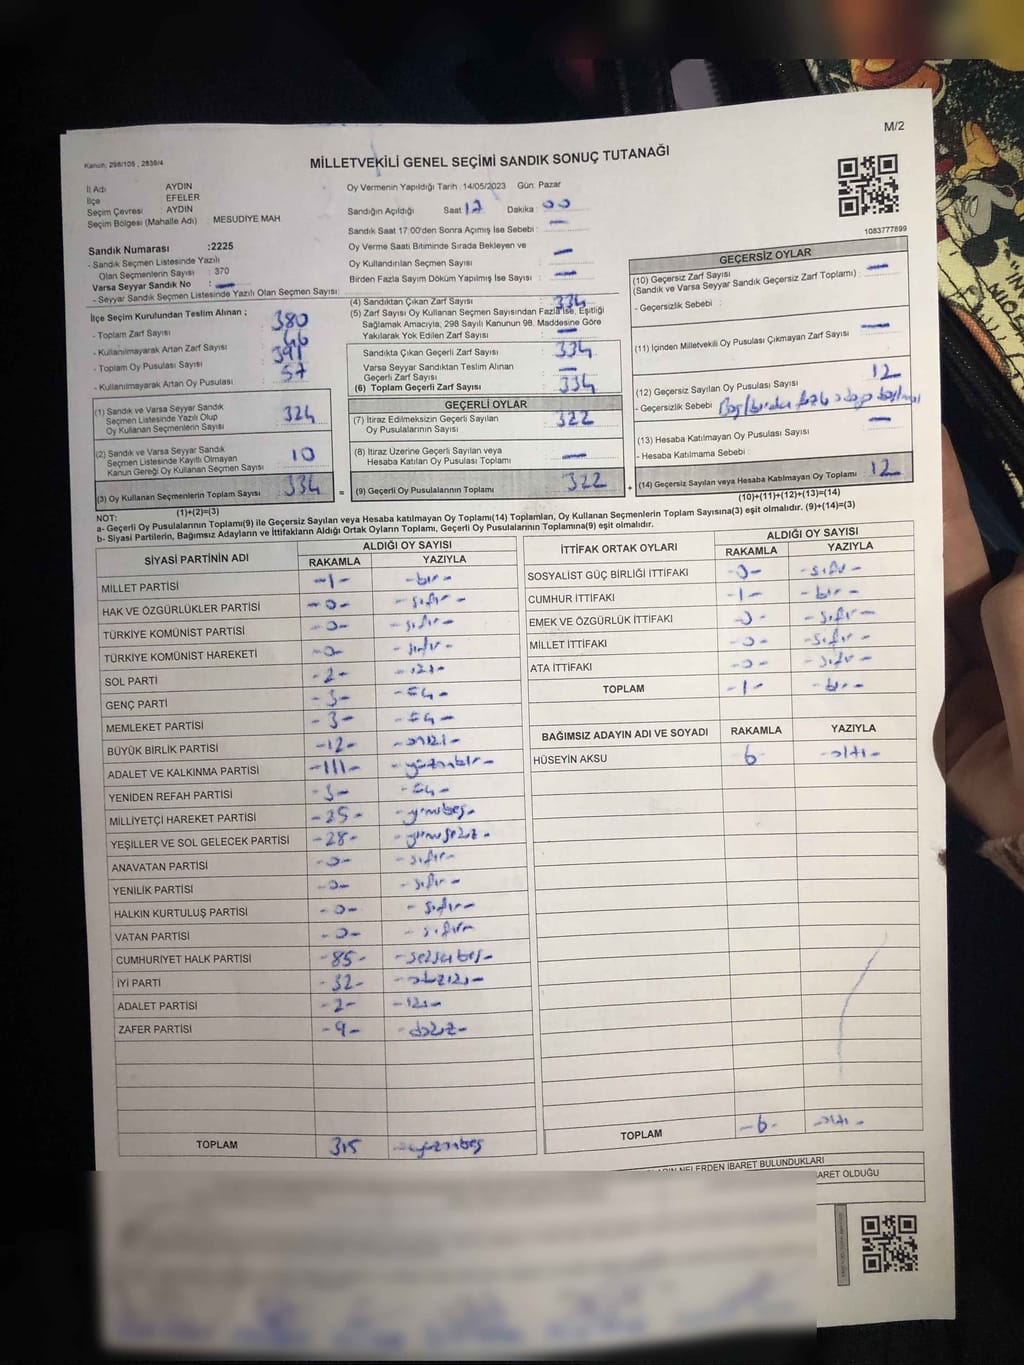 M/2
Kanun: 298/105 , 2839/4
MİLLETVEKİLİ GENEL SEÇİMİ SANDIK SONUÇ TUTANAĞI
İl Adı AYDIN
İlçe EFELER
Seçim Çevresi AYDIN
Seçim Bölgesi (Mahalle Adı) MESUDİYE MAH
Sandık Numarası :2225
- Sandık Seçmen Listesinde Yazılı
Olan Seçmenlerin Sayısı : 370
Varsa Seyyar Sandık No :
- Seyyar Sandık Seçmen Listesinde Yazılı Olan Seçmen Sayısı:
Oy Vermenin Yapıldığı Tarih : 14/05/2023 Gün: Pazar
Sandığın Açıldığı Saat 17 Dakika : 00
Sandık Saat 17:00'den Sonra Açılmış İse Sebebi : —
Oy Verme Saati Bitiminde Sırada Bekleyen ve
Oy Kullandırılan Seçmen Sayısı : —
Birden Fazla Sayım Döküm Yapılmış İse Sayısı : —
1083777899
İlçe Seçim Kurulundan Teslim Alınan ;
- Toplam Zarf Sayısı : 380
- Kullanılmayarak Artan Zarf Sayısı : 46
- Toplam Oy Pusulası Sayısı : 391
- Kullanılmayarak Artan Oy Pusulası : 57
(1) Sandık ve Varsa Seyyar Sandık
Seçmen Listesinde Yazılı Olup
Oy Kullanan Seçmenlerin Sayısı : 324
(2) Sandık ve Varsa Seyyar Sandık
Seçmen Listesinde Kayıtlı Olmayan
Kanun Gereği Oy Kullanan Seçmen Sayısı : 10
(3) Oy Kullanan Seçmenlerin Toplam Sayısı : 334
(1)+(2)=(3)
(4) Sandıktan Çıkan Zarf Sayısı : 334
(5) Zarf Sayısı Oy Kullanan Seçmen Sayısından Fazla İse, Eşitliği
Sağlamak Amacıyla; 298 Sayılı Kanunun 98. Maddesine Göre
Yakılarak Yok Edilen Zarf Sayısı : —
Sandıkta Çıkan Geçerli Zarf Sayısı : 334
Varsa Seyyar Sandıktan Teslim Alınan
Geçerli Zarf Sayısı : —
(6) Toplam Geçerli Zarf Sayısı : 334
GEÇERLİ OYLAR
(7) İtiraz Edilmeksizin Geçerli Sayılan
Oy Pusulalarının Sayısı : 322
(8) İtiraz Üzerine Geçerli Sayılan veya
Hesaba Katılan Oy Pusulası Toplamı : —
= (9) Geçerli Oy Pusulalarının Toplamı : 322 +
GEÇERSİZ OYLAR
(10) Geçersiz Zarf Sayısı
(Sandık ve Varsa Seyyar Sandık Geçersiz Zarf Toplamı) : —
- Geçersizlik Sebebi :
(11) İçinden Milletvekili Oy Pusulası Çıkmayan Zarf Sayısı : —
(12) Geçersiz Sayılan Oy Pusulası Sayısı : 12
- Geçersizlik Sebebi
(13) Hesaba Katılmayan Oy Pusulası Sayısı : —
- Hesaba Katılmama Sebebi :
(14) Geçersiz Sayılan veya Hesaba Katılmayan Oy Toplamı : 12
(10)+(11)+(12)+(13)=(14)
NOT:
a- Geçerli Oy Pusulalarının Toplamı(9) ile Geçersiz Sayılan veya Hesaba katılmayan Oy Toplamı(14) Toplamları, Oy Kullanan Seçmenlerin Toplam Sayısına(3) eşit olmalıdır. (9)+(14)=(3)
b- Siyasi Partilerin, Bağımsız Adayların ve İttifakların Aldığı Ortak Oyların Toplamı, Geçerli Oy Pusulalarının Toplamına(9) eşit olmalıdır.
SİYASİ PARTİNİN ADI ALDIĞI OY SAYISI
RAKAMLA YAZIYLA
MİLLET PARTİSİ -1- -bir-
HAK VE ÖZGÜRLÜKLER PARTİSİ -0- -sıfır-
TÜRKİYE KOMÜNİST PARTİSİ -0- -sıfır-
TÜRKİYE KOMÜNİST HAREKETİ -0- -sıfır-
SOL PARTİ -2- -iki-
GENÇ PARTİ -3- -üç-
MEMLEKET PARTİSİ -3- -üç-
BÜYÜK BİRLİK PARTİSİ -12- -oniki-
ADALET VE KALKINMA PARTİSİ -111- -yüzonbir-
YENİDEN REFAH PARTİSİ -3- -üç-
MİLLİYETÇİ HAREKET PARTİSİ -25- -yirmibeş-
YEŞİLLER VE SOL GELECEK PARTİSİ -28- -yirmisekiz-
ANAVATAN PARTİSİ -0- -sıfır-
YENİLİK PARTİSİ -0- -sıfır-
HALKIN KURTULUŞ PARTİSİ -0- -sıfır-
VATAN PARTİSİ -0- -sıfır-
CUMHURİYET HALK PARTİSİ -85- -seksenbeş-
İYİ PARTİ -32- -otuziki-
ADALET PARTİSİ -2- -iki-
ZAFER PARTİSİ -9- -dokuz-
TOPLAM 315 -üçyüzonbeş
İTTİFAK ORTAK OYLARI ALDIĞI OY SAYISI
RAKAMLA YAZIYLA
SOSYALİST GÜÇ BİRLİĞİ İTTİFAKI -0- -sıfır-
CUMHUR İTTİFAKI -1- -bir-
EMEK VE ÖZGÜRLÜK İTTİFAKI -0- -sıfır-
MİLLET İTTİFAKI -0- -sıfır-
ATA İTTİFAKI -0- -sıfır-
TOPLAM -1- -bir-
BAĞIMSIZ ADAYIN ADI VE SOYADI RAKAMLA YAZIYLA
HÜSEYİN AKSU 6 -altı-
TOPLAM -6- -altı-
NELERDEN İBARET BULUNDUKLARI
BARET OLDUĞU